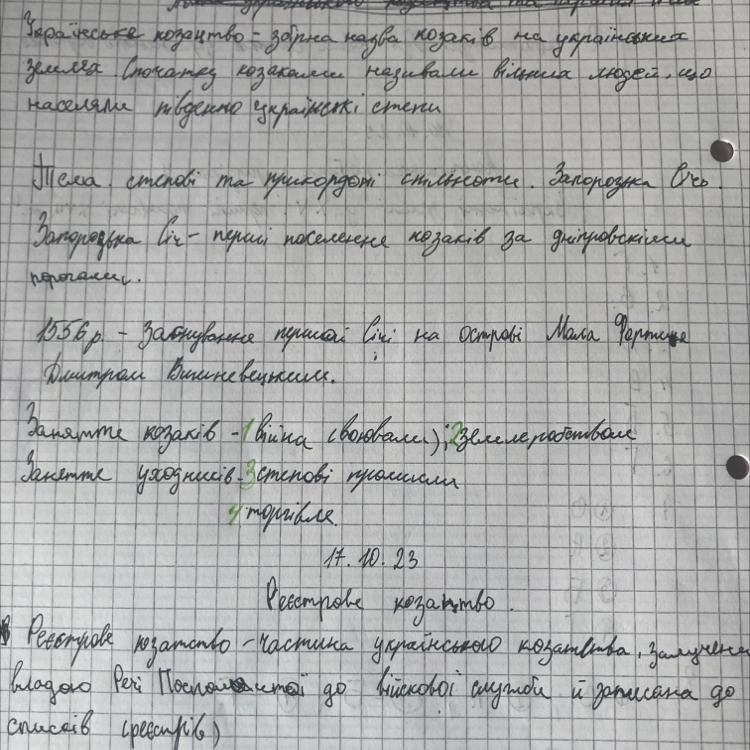 Українське козацтво - збірна назва козаків на українських
землях. Спочатку козаками називали вільних людей, що
населяли південно українські степи
Тема. степові та прикордоні спільноти. Запорозька Січ.
Запорозька Січ - перші поселення козаків за дніпровскіми
порогами.
1556р. - Заснування першої Січі на острові Мала Хортиця
Дмитром Вишневецьким.
Заняття козаків - 1 війна (воювали); 2 землеробством
Заняття уходників - 3 степові промисли
4 торгівля.
17. 10. 23
Реєстрове козацтво.
Реєстрове козатство - частина українського козатства, залучена
владою Речі Посполитої до війскової служби й записана до
списків (реєстрів)